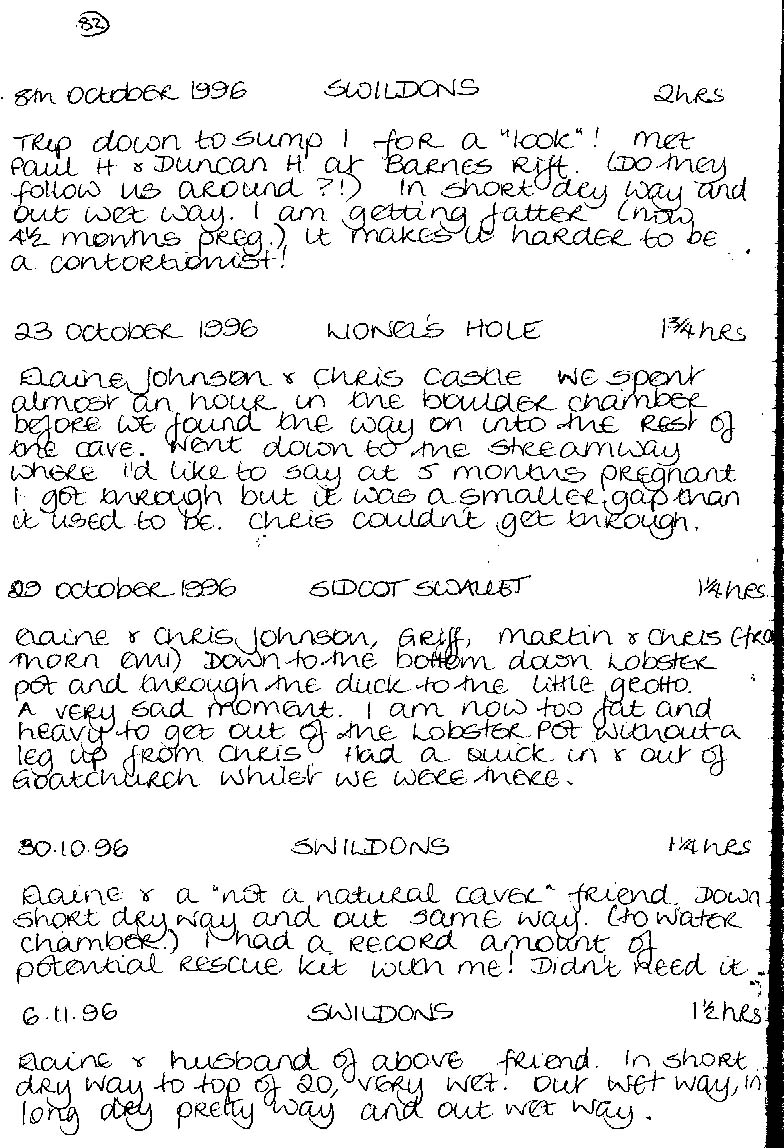 82
8th October 1996 SWILDONS 2hrs
Trip down to sump 1 for a "look"! Met
Paul H & Duncan H at Barnes Rift. (Do they
follow us around?!) In short dry way and
out wet way. I am getting fatter (now
4½ months preg.) it makes it harder to be
a contortionist!
23 October 1996 LIONEL'S HOLE 1¾hrs
Elaine Johnson & Chris Castle We spent
almost an hour in the boulder chamber
before we found the way on into the rest of
the cave. Went down to the streamway
where I'd like to say at 5 months pregnant
I got through but it was a smaller gap than
it used to be. Chris couldn't get through.
29 October 1996 SIDCOT SWALLET 1¼hrs
Elaine & Chris Johnson, Griff, Martin & Chris (from
Thorn EMI) Down to the bottom down Lobster
pot and through the duck to the little grotto.
A very sad moment. I am now too fat and
heavy to get out of the Lobster Pot without a
leg up from Chris! Had a quick in & out of
Goatchurch whilst we were there.
30.10.96 SWILDONS 1¼hrs
Elaine & a "not a natural caver" friend. Down
short dry way and out same way. (to water
chamber.) I had a record amount of
potential rescue kit with me! Didn't need it.
6.11.96 SWILDONS 1½hrs
Elaine & husband of above friend. In short
dry way to top of 20, very wet. Out wet way, in
long dry pretty way and out wet way.